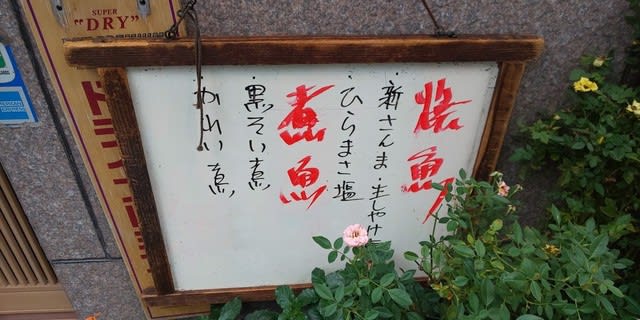 焼魚
・新さんま・生しゃけ
・ひらまさ塩
煮魚
・黒そい煮
・かれい煮
SUPER
"DRY"
ドライ